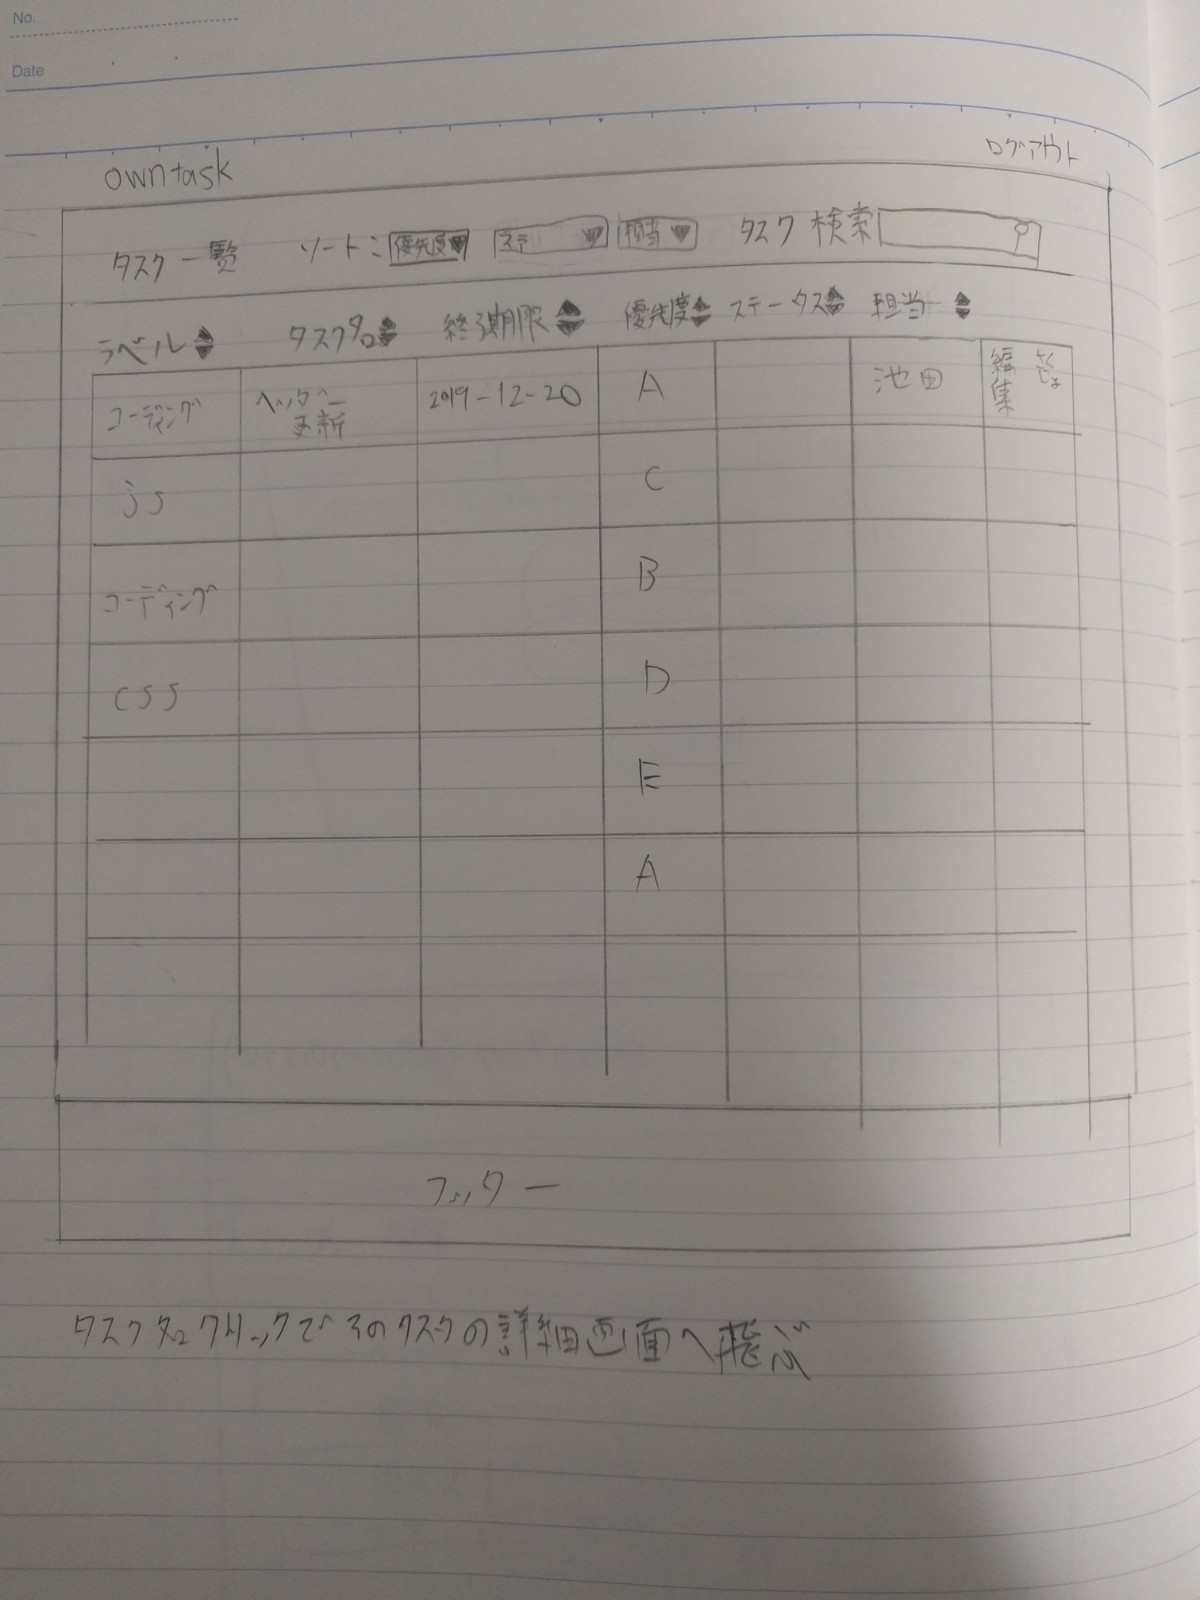 No.
Date
owntask ログアウト
タスク一覧 ソート: 優先度▼ ステ ▼ 担当▼ タスク検索
ラベル タスク名 終了期限 優先度 ステータス 担当
コーディング ヘッダー更新 2019-12-20 A 池田 編集 さくじょ
js C
コーディング B
css D
E
A
フッター
タスク名クリックでそのタスクの詳細画面へ飛ぶ